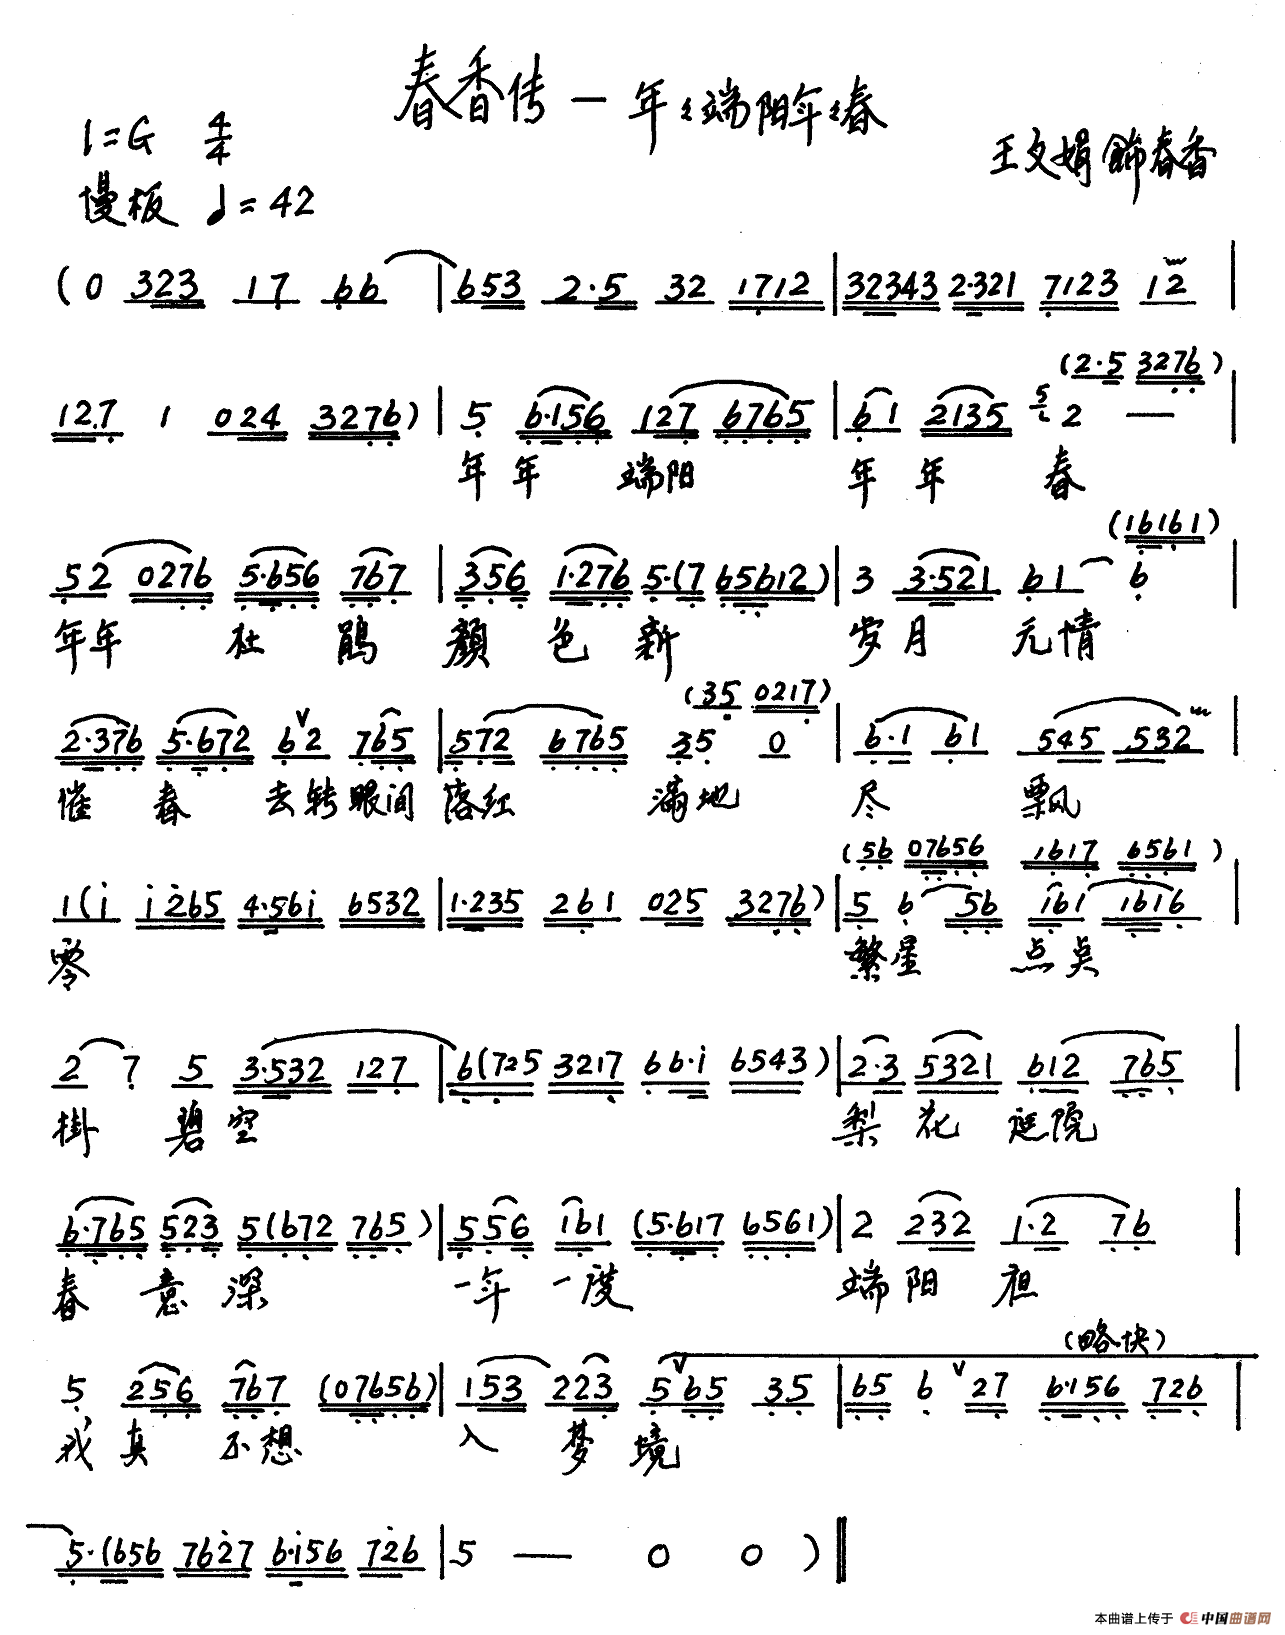 春香传 — 年々端阳年々春
1=G 4/4
王文娟 饰春香
慢板 ♩=42
(0 323 17 66 | 653 2·5 32 1712 | 32343 2·321 7123 12 |
(2·5 3276)
127 1 024 3276) | 5 6·156 127 6765 | 61 2135 2 — |
年年 端阳 年年 春
(16161)
52 0276 5·656 767 | 356 1·276 5·(7 65612) | 3 3·521 61 6 |
年年 杜鹃 颜色新 岁月无情
(35 0217)
2·376 5·672 62 765 | 572 6765 35 0 | 6·1 61 545 532 |
催春去转眼间 落红 满地 尽飘
(56 07656 1617 6561)
1(i i265 4·56i 6532 | 1·235 261 025 3276) | 5 6 56 161 1616 |
零 繁星 点点
2 7 5 3·532 127 | 6(725 3217 66·i 6543) | 2·3 5321 612 765 |
掛 碧空 梨花 延院
6·765 523 5(672 765) | 556 161 (5·617 6561) | 2 232 1·2 76 |
春意深 一年一度 端阳
(略快)
5 256 767 (07656) | 153 223 5 65 35 | 65 6 27 6·156 726 |
我真不想 入梦境
5·(656 7627 6·i56 726 | 5 — 0 0) ‖
本曲谱上传于 中国曲谱网